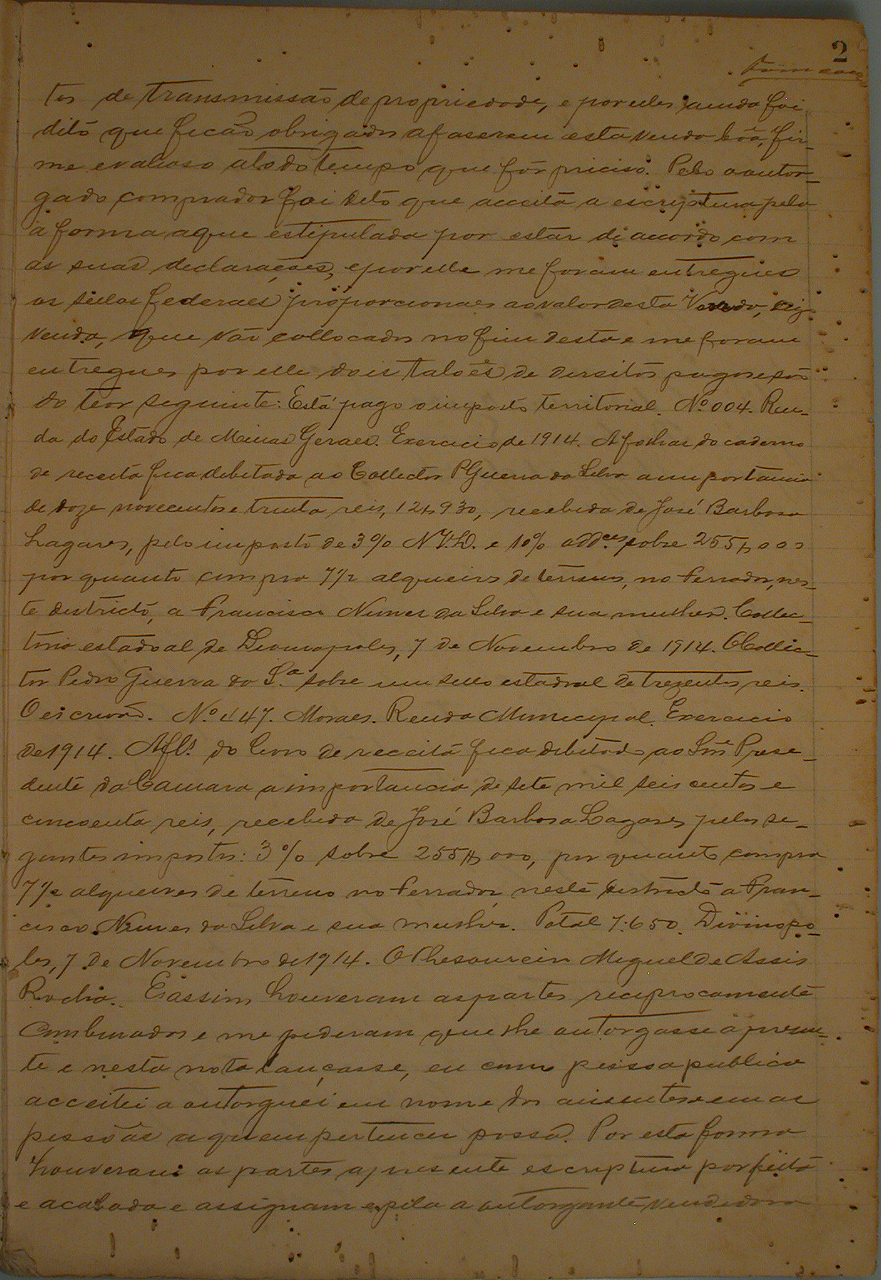 2
tes de transmissão de propriedade, e por elles ainda foi
dito que ficão obrigados a faserem esta venda bôa, fir-
me e valiosa a todo tempo que fôr preciso. Pelo outor-
gado comprador foi dito que acceita a escriptura pela
a forma aque estipulada por estar di accordo com
as suas declarações, e por elle me foram entregues
os sellos federaes proporcionaes ao valor desta Venda, digo
venda, que vão collocados no fim desta e me foram
entregues por elle dois talões de direitos pagos e são
do teor seguinte: Está pago o imposto territorial. Nº 004. Ren-
da do Estado de Minas Geraes. Exercicio de 1914. A folhas do caderno
de receita fica debitada ao Collector P Guerra da Silva a importancia
de doze novecentos e trinta reis, 12$930, recebida de José Barbosa
Lagares, pelo imposto de 3% N.V.D. e 10% addces sobre 255$000
por quanto compra 7 1/2 alqueires de terreno, no Ferrador, nes-
te districto, a Francisco Nunes da Silva e sua mulher. Collec-
toria estadoal de Divinopoles, 7 de Novembro de 1914. O Collec-
tor Pedro Guerra da S.ª sobre um sello estadoal de trezentos reis.
O escrivão. Nº 447. Moraes. Renda Municipal. Exercicio
de 1914. A fls. do livro de receita fica debitado ao Snr Presi-
dente da Camara a importancia de sete mil seis centos e
cincoenta reis, recebida de José Barbosa Lagares pelos se-
guintes impostos: 3% sobre 255$000, por quanto compra
7 1/2 alqueires de terreno no Ferrador, neste districto a Fran-
cisco Nunes da Silva e sua mulher. Total 7:650. Divinopo-
les, 7 de Novembro de 1914. O Thesoureiro Miguel de Assis
Rocha. E assim houveram as partes reciprocamente
Combinados e me pederam que lhe outorgasse a presen-
te e nesta nota lançasse, eu como pessoa publica
acceitei a outorguei em nome dos ausentes e em as
pessôas a quem pertencer possa. Por esta forma
houveram as partes a presente escriptura por feita
e acabada e assignam e pela a outorgante vendedora